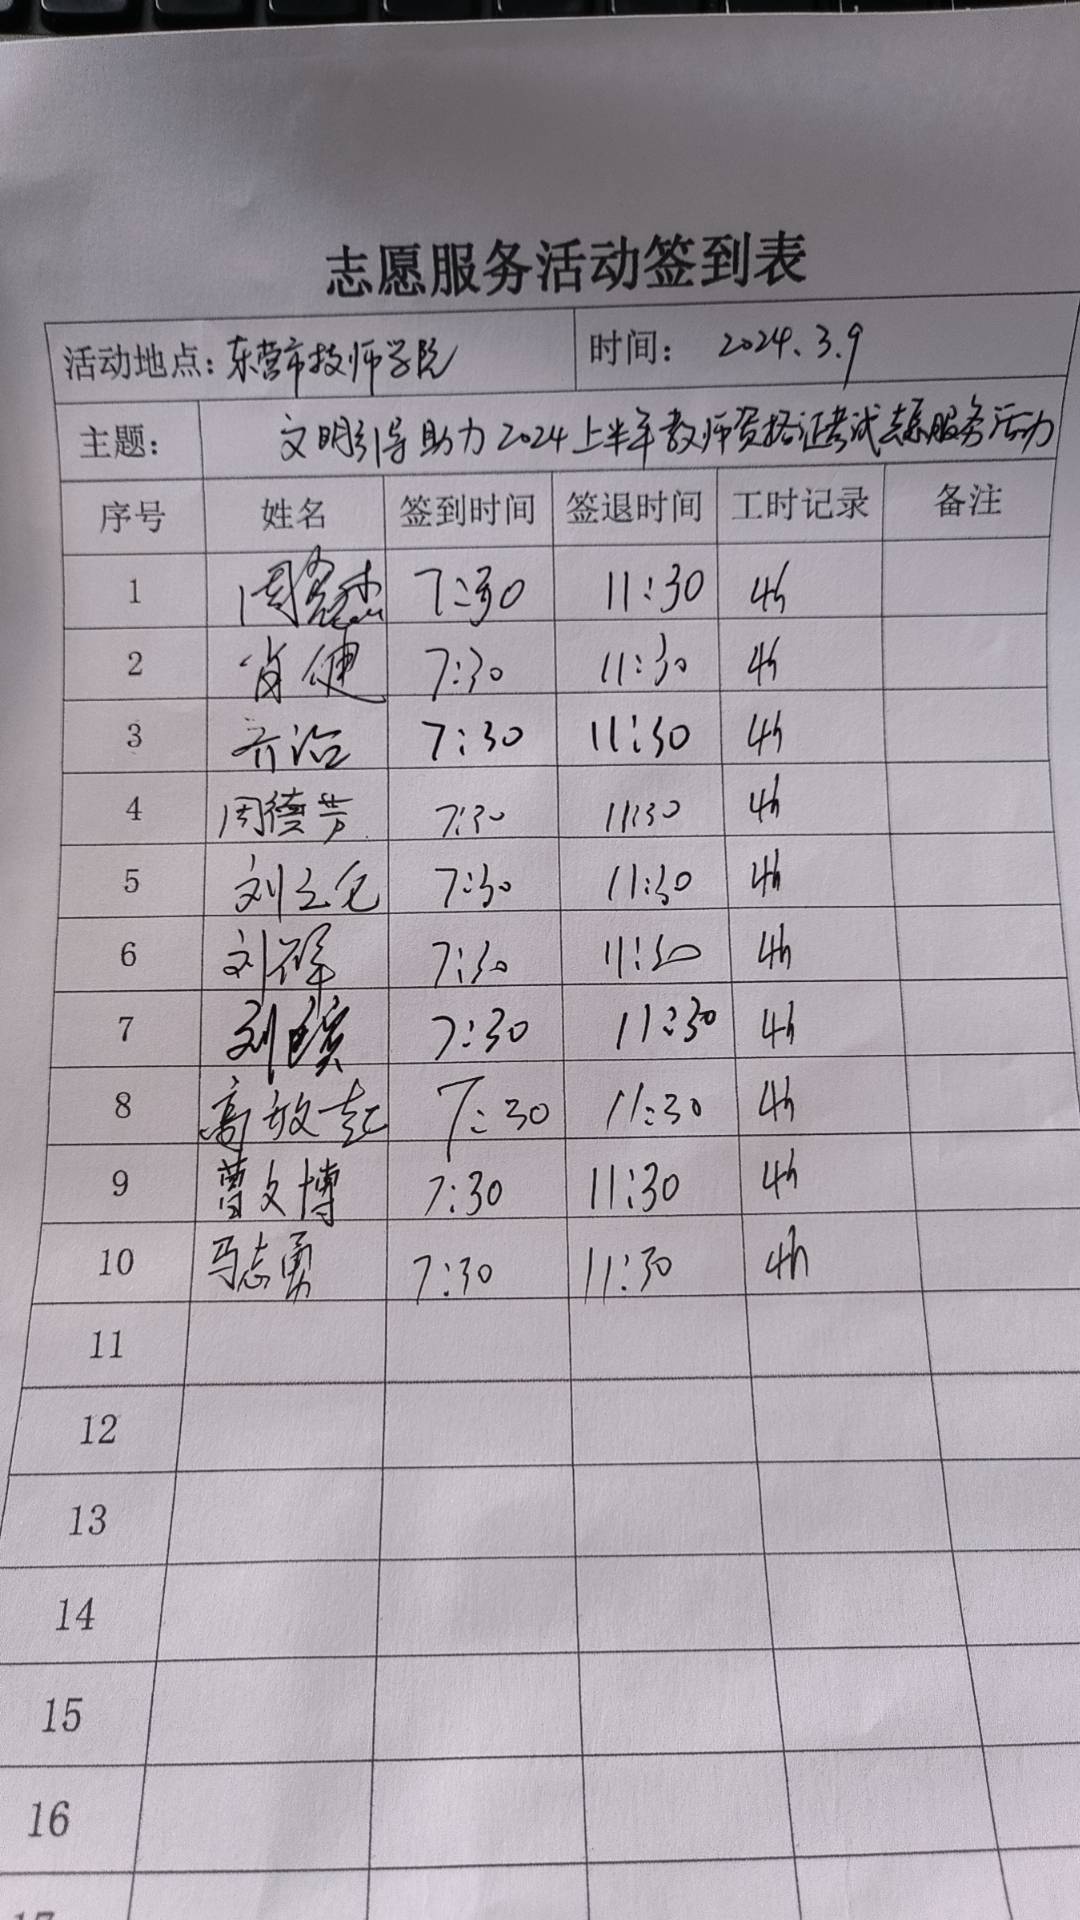 志愿服务活动签到表
活动地点：东营市技师学院 时间： 2024.3.9
主题： 文明引导助力2024上半年教师资格证考试志愿服务活动
序号 姓名 签到时间 签退时间 工时记录 备注
1 周 7:30 11:30 4h
2 肖健 7:30 11:30 4h
3 齐治 7:30 11:30 4h
4 周德芳 7:30 11:30 4h
5 刘立仓 7:30 11:30 4h
6 刘祥 7:30 11:30 4h
7 刘 7:30 11:30 4h
8 高放起 7:30 11:30 4h
9 曹文博 7:30 11:30 4h
10 马志勇 7:30 11:30 4h
11
12
13
14
15
16
17